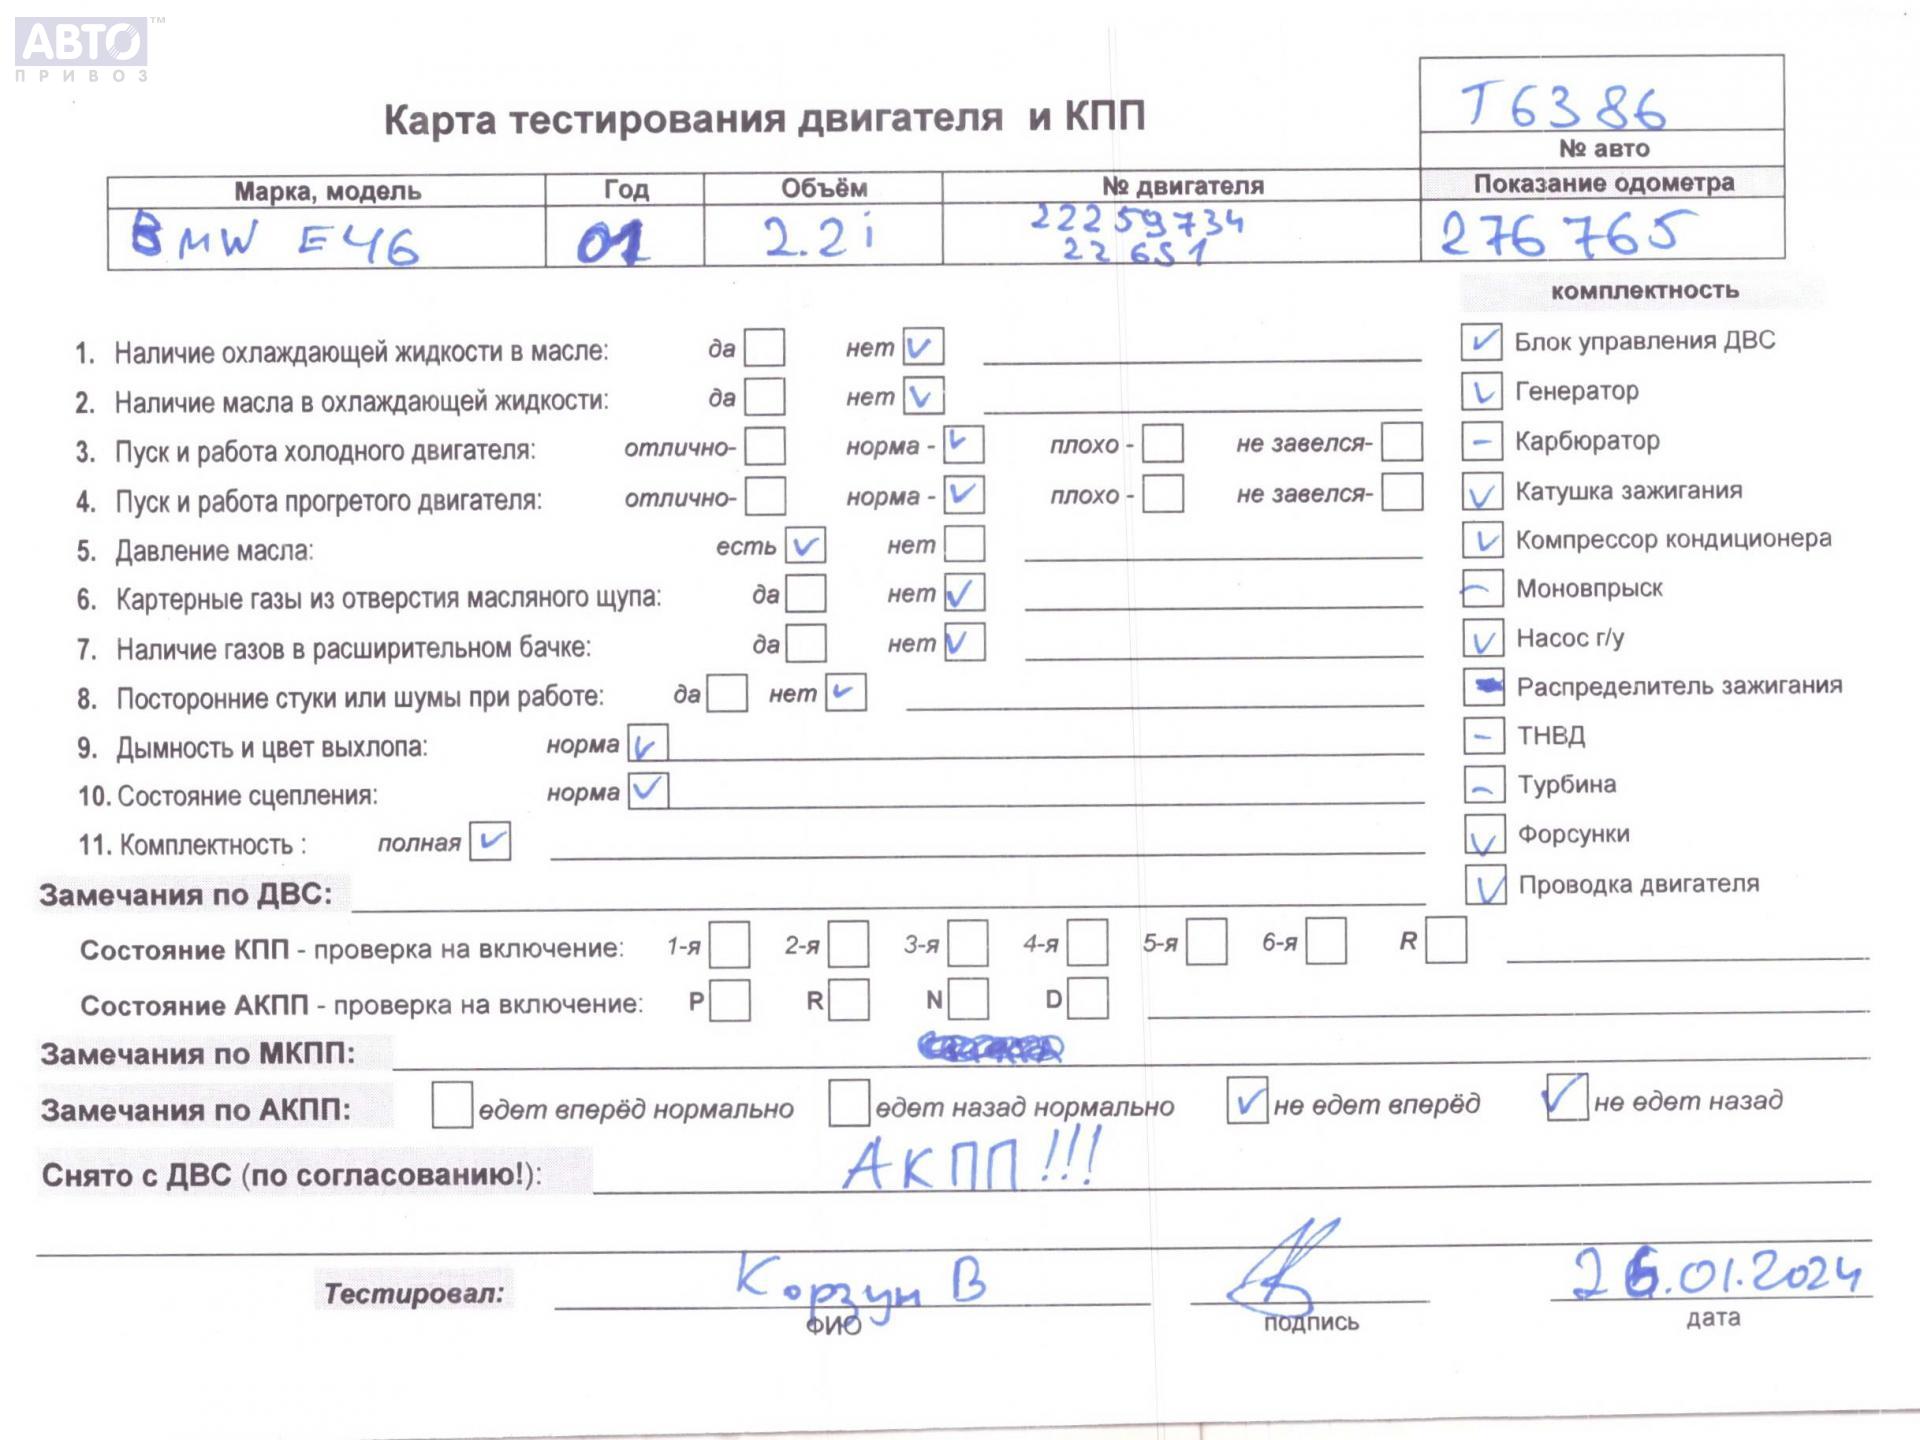 АВТО™
ПРИВОЗ
Карта тестирования двигателя и КПП
Т6386
№ авто
Марка, модель Год Объём № двигателя Показание одометра
BMW E46 01 2.2i 22259734 276765
22 6S1
комплектность
1. Наличие охлаждающей жидкости в масле: да нет ✓ Блок управления ДВС ✓
2. Наличие масла в охлаждающей жидкости: да нет ✓ Генератор ✓
3. Пуск и работа холодного двигателя: отлично- норма - ✓ плохо - не завелся- Карбюратор -
4. Пуск и работа прогретого двигателя: отлично- норма - ✓ плохо - не завелся- Катушка зажигания ✓
5. Давление масла: есть ✓ нет Компрессор кондиционера ✓
6. Картерные газы из отверстия масляного щупа: да нет ✓ Моновпрыск -
7. Наличие газов в расширительном бачке: да нет ✓ Насос г/у ✓
8. Посторонние стуки или шумы при работе: да нет ✓ Распределитель зажигания
9. Дымность и цвет выхлопа: норма ✓ ТНВД -
10. Состояние сцепления: норма ✓ Турбина -
11. Комплектность : полная ✓ Форсунки ✓
Замечания по ДВС: Проводка двигателя ✓
Состояние КПП - проверка на включение: 1-я 2-я 3-я 4-я 5-я 6-я R
Состояние АКПП - проверка на включение: P R N D
Замечания по МКПП:
Замечания по АКПП: едет вперёд нормально едет назад нормально ✓ не едет вперёд ✓ не едет назад
Снято с ДВС (по согласованию!): АКПП!!!
Тестировал: Корзун В 26.01.2024
ФИО подпись дата